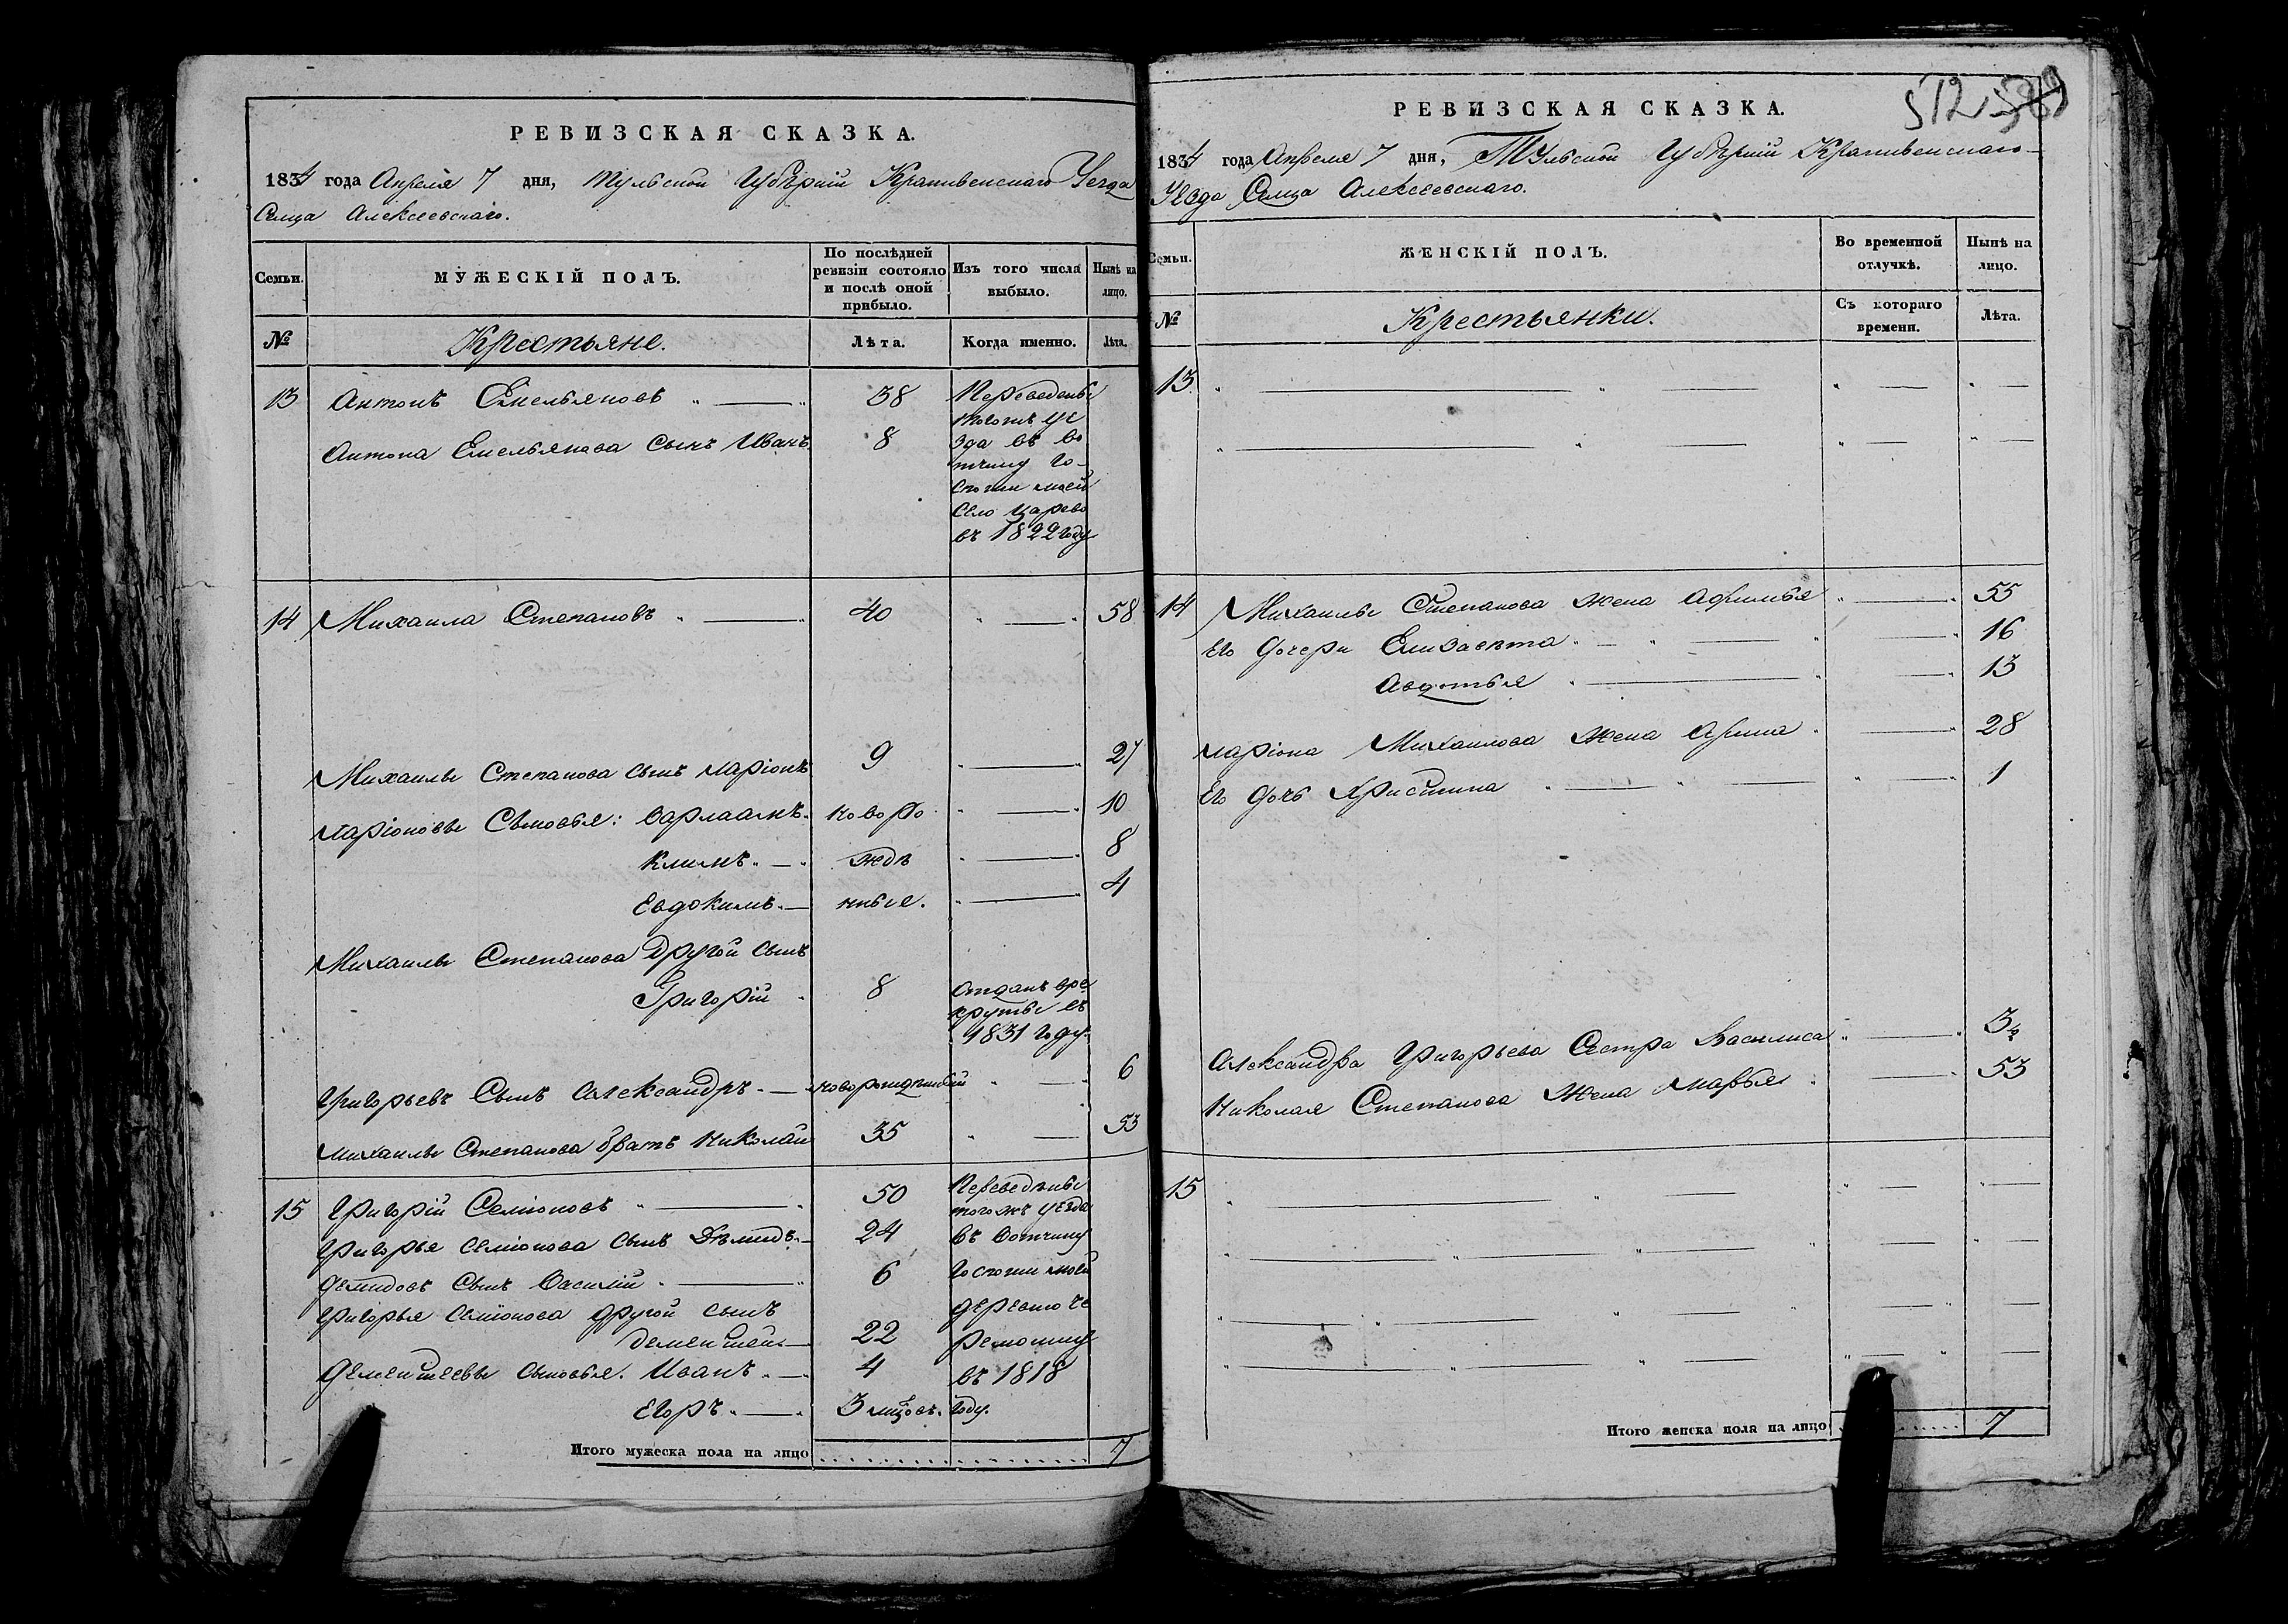 РЕВИЗСКАЯ СКАЗКА.
1834 года Апреля 7 дня, Тульской Губерніи Крапивенскаго Уезда
Селца Алексеевскаго.
Семьи.
МУЖЕСКІЙ ПОЛЪ.
По послѣдней ревизіи состояло и послѣ оной прибыло.
Изъ того числа выбыло.
Нынѣ на лицо.
№
Крестьяне.
Лѣта.
Когда именно.
Лѣта.
13 Антонъ Емельяновъ „ — „ 38 Переведены
тогожъ уе
Антона Емельянова сынъ Иванъ. 8 зда въ во
тчину го-
спожи моей
село Царево
въ 1822 году
14 Михаила Степановъ „ — „ 40 „ — „ 58
Михаилы Степанова сынъ Ларіонъ 9 „ — „ 27
Ларіоновы Сыновья: Варлаамъ. новоро „ — „ 10
Климъ. — „ жде „ — „ 8
Евдокимъ. — нные. „ — „ 4
Михаилы Степанова Другой сынъ
Григорій „ 8 Отданъ вре
круты въ
1831 году.
Григорьевъ Сынъ Александръ. — новорожденный „ — „ 6
Михаилы Степанова братъ Николай 35 „ — 53
15 Григорій Семіоновъ „ — „ 50 Переведены
тогожъ уезда
Григорья Семіонова сынъ Демидъ. — 24 въ вотчину
Демидовъ Сынъ Василій. — „ 6 Госпожи моей
Григорья Семіонова другой сынъ деревню Че
Дементей — 22 ремошну
Дементеевы сыновья. Иванъ. — 4 въ 1818
Егоръ. — „ 3 мцовъ. году.
Итого мужеска пола на лицо 7
512 589
РЕВИЗСКАЯ СКАЗКА.
1834 года Апреля 7 дня, Тульской Губерніи Крапивенскаго
Уезда Селца Алексеевскаго.
Семьи.
ЖЕНСКІЙ ПОЛЪ.
Во временной отлучкѣ.
Нынѣ на лицо.
№
Крестьянки.
Съ котораго времени.
Лѣта.
13. „ — „ — „ — „ —
„ — „ — „ — „ —
14 Михаилы Степанова жена Афимья „ — „ 55
Его Дочери Елизавета „ — „ — „ — „ 16
Авдотья „ — „ — „ 13
Ларіона Михаилова жена Арина „ — „ 28
Его дочь Христина „ — „ — „ — „ 1
Александра Григорьева Сестра Василиса „ — „ 3
Николая Степанова жена Марья „ — „ 53
15 „ — „ — „ — „ —
„ — „ — „ — „ —
„ — „ — „ — „ —
„ — „ — „ — „ —
Итого женска пола на лицо 7